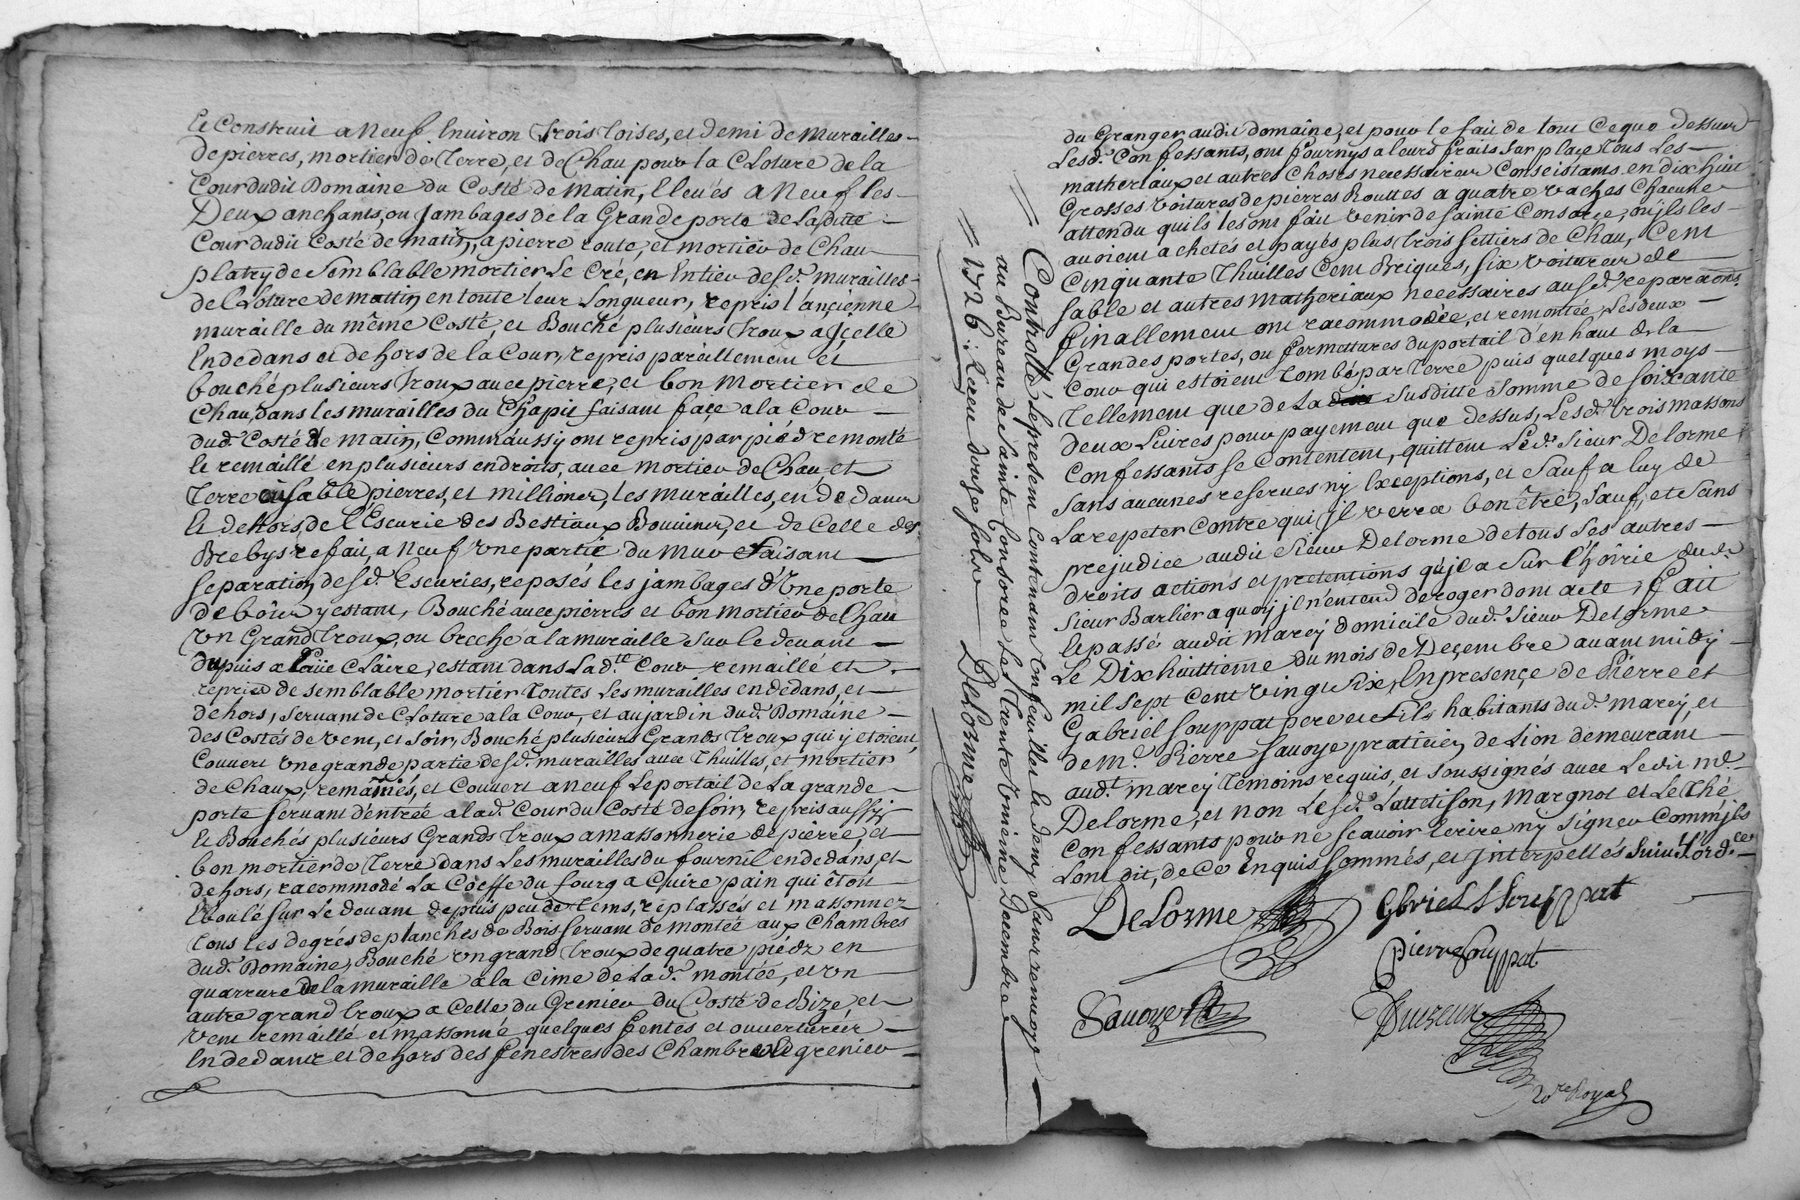 Et Construit a Neuf Environ trois toises, et demi de murailles
de pierres, mortier de terre, et de Chau pour la Cloture de la
Cour dudit Domaine du Costé de matin, Eleués a Neuf les
Deux anchants, ou jambages de la Grande porte de Laditte
Cour dudit Costé de matin, a pierre route, et mortier de Chau
platry de Semblable mortier Le Cré, en Entier desd. murailles
de Cloture de mattin en toute leur Longueur, repris l'ancienne
muraille du même Costé, et Bouché plusieurs troux a Icelle
En dedans et dehors de la Cour, repris pareillement et
bouché plusieurs troux auec pierre, et bon mortier de
Chau, dans les murailles du Chapit faisant façe a la Cour
dud. Costé de matin, Comm'aussy ont repris par pié de remonté
le remaillé en plusieurs endroits, auec mortier de Chau, et
Terre ou sable, pierres, et millioner, les murailles, en dedans
Et dehors, de l'Escurie des Bestiaux Bouuiner, et de Celle des
Brebys refait, a Neuf Vne partie du mur faisant
separation desd. Escuries, reposés les jambages d'Vne porte
de bois y estant, Bouché auec pierres et bon mortier de Chau
Vn Grand troux, ou breche a la muraille sur le deuant
depuis a Claire, estant dans Lad.te Cour remaillé et
repris de semblable mortier toutes les murailles en dedans, et
dehors, seruant de Cloture a la Cour, et au jardin dud. Domaine
des Costés de vent, et soir, Bouché plusieurs Grands troux qui y etoient,
Couuert vne grande partie desd. murailles auec thuilles, et mortier
de Chaux, remaniés, et Couuert a neuf Le portail de La grande
porte seruant d'entrée a lad. Cour du Costé de soir, repris aussy
Et Bouchés plusieurs Grands troux a massonnerie de pierre, et
bon mortier de terre dans Les murailles du fournil en dedans, et
dehors, racommodé La Coeffe du fourg a Cuire pain qui étoit
Eboulé sur Le deuant depuis peu de tems, replassés et massonnez
tous les degrés de planches de Bois seruant de montée aux Chambres
dud. Domaine, Bouché vn grand troux de quatre piédz en
quarrure de la muraille a la Cime de Lad. montée, et vn
autre grand troux a Celle du Grenier du Costé de Bize, et
vent remaillé et massonné quelques fentes et ouuertures
En dedans et dehors des fenestres des Chambres et grenier
du Granger audit domaine, et pour le fait de tout Ceque dessus
Lesd. Confessants, ont fournys a leurs fraits sur plaçe tous Les
matheriaux et autres Choses necessaires Consistants en dix huit
Grosses voitures de pierres Routtes a quatre vaches Chacune
attendu qu'ils les ont fait venir de sainte Consorçe, ou jls les
auoient achetés et payés plus trois settiers de Chau, Cent
Cinquante thuilles Cent Briques, six voitures de
sable et autres matheriaux necessaires ausd. reparaõns
finallement ont racommodée, et remontée, Les deux
Grandes portes, ou fermettures du portail d'en haut de la
Cour qui estoient tombé par terre puis quelques moys
Tellement que de La susditte somme de soixcante
deux Liures pour payement que dessus, Lesd. trois massons
Confessants se Contentent, quittent Led. Sieur Delorme
sans aucunes reserues ny Exceptions, et sauf a luy de
La repeter contre qui jl verra bon être, sauf, et sans
prejudice audit Sieur Delorme de tous ses autres
droits actions et pretentions qu'jl a sur l'hoirie dud.
Sieur Barlier a quoy jl n'entend deroger dont acte, Fait
Et passé audit marcy domicile dud. Sieur Delorme
Le Dixhuittieme du mois de Deçembre auant midy
mil sept cent vingt six, En presençe de Pierre et
Gabriel Souppat pere et fils habitants dud. marcy, et
de m.e Pierre Sauoye pratitien de Lion demeurant
aud.t marcy témoins requis, et soussignés auec Ledit md.
Delorme, et non Lesd. Lattetison, Margnot et Le thé
Confessants pour ne sçauoir Ecrire ny signer Comm'jls
L'ont dit, de Ce Enquis Sommés, et jnterpellés suiu.t l'ord.ce
Delorme
Gbriel Souppat
pierre Souppat
Sauoye
Nre Royal
Controllé le present Contenant trois feuilles Et demy sans renuoye
au Bureau de Sainte Consorce Le trente Vnieme Decembre
1726. Receu douze sols Delorme